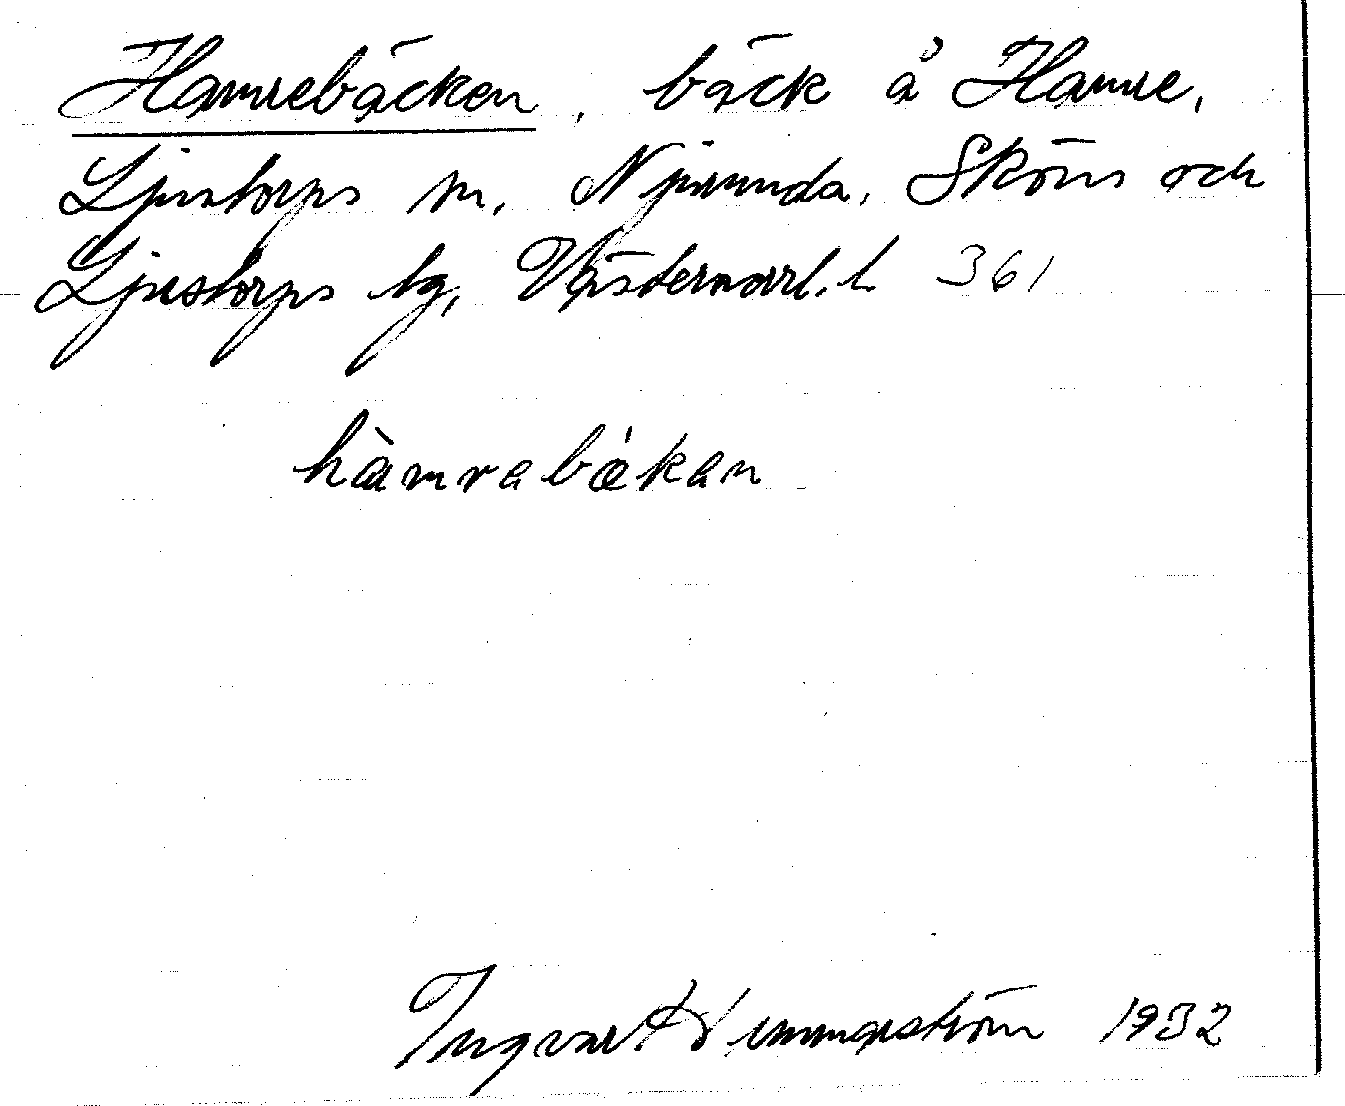 Hamrebäcken, bäck å Hamre,
Ljustorps sn, Njurunda, Sköns och
Ljustorps tg, Västernorrl. l. 361
hàmrabäkan
Ingvar 1932